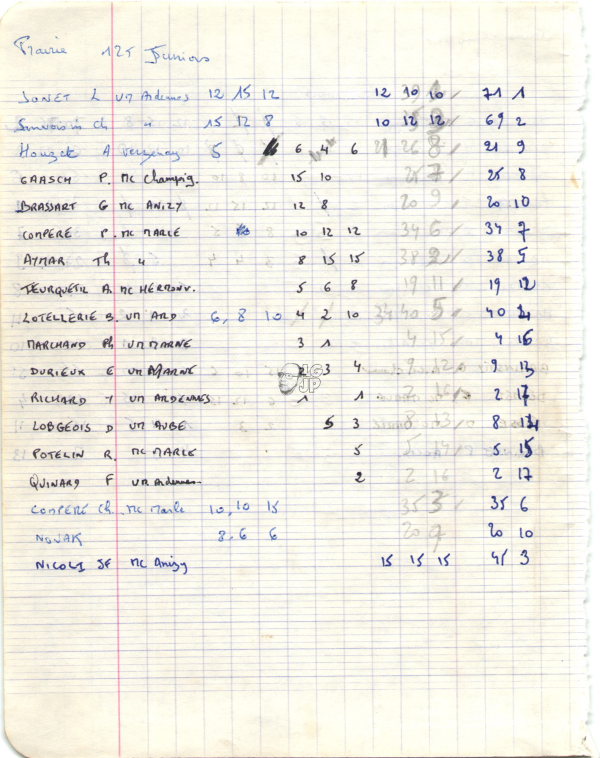 Prairie 125 Juniors
JONET L UM Ardennes 12 15 12 12 10 10 71 1
Ch " 15 12 8 10 12 12 69 2
A Verzenay 5 6 4 6 21 9
GAASCH P. MC Champig. 15 10 25 7 25 8
BRASSART G MC ANIZY 12 8 20 9 20 10
COMPERE P. MC MARLE 10 12 12 34 6 34 7
AYMAR Th " 8 15 15 38 38 5
TEURQUETIL A. MC HERMONV. 5 6 8 19 11 19 12
LOTELLERIE B. UM ARD 6, 8 10 4 2 10 34 40 5 40 4
MARCHAND Ph UM MARNE 3 1 4 15 4 16
DURIEUX E UM MARNE 2 3 4 9 12 9 13
RICHARD Y UM ARDENNES 1 1 2 2 17
LOBGEOIS D UM AUBE 5 3 8 13 8 14
POTELIN R. MC MARLE 5 5 14 5 15
QUINARD F UM Ardennes 2 2 16 2 17
COMPERE Ch. MC Marle 10, 10 15 35 3 35 6
NOVAK 8. 6 6 20 9 20 10
NICOLI JF MC Anizy 15 15 15 45 3
IG JP